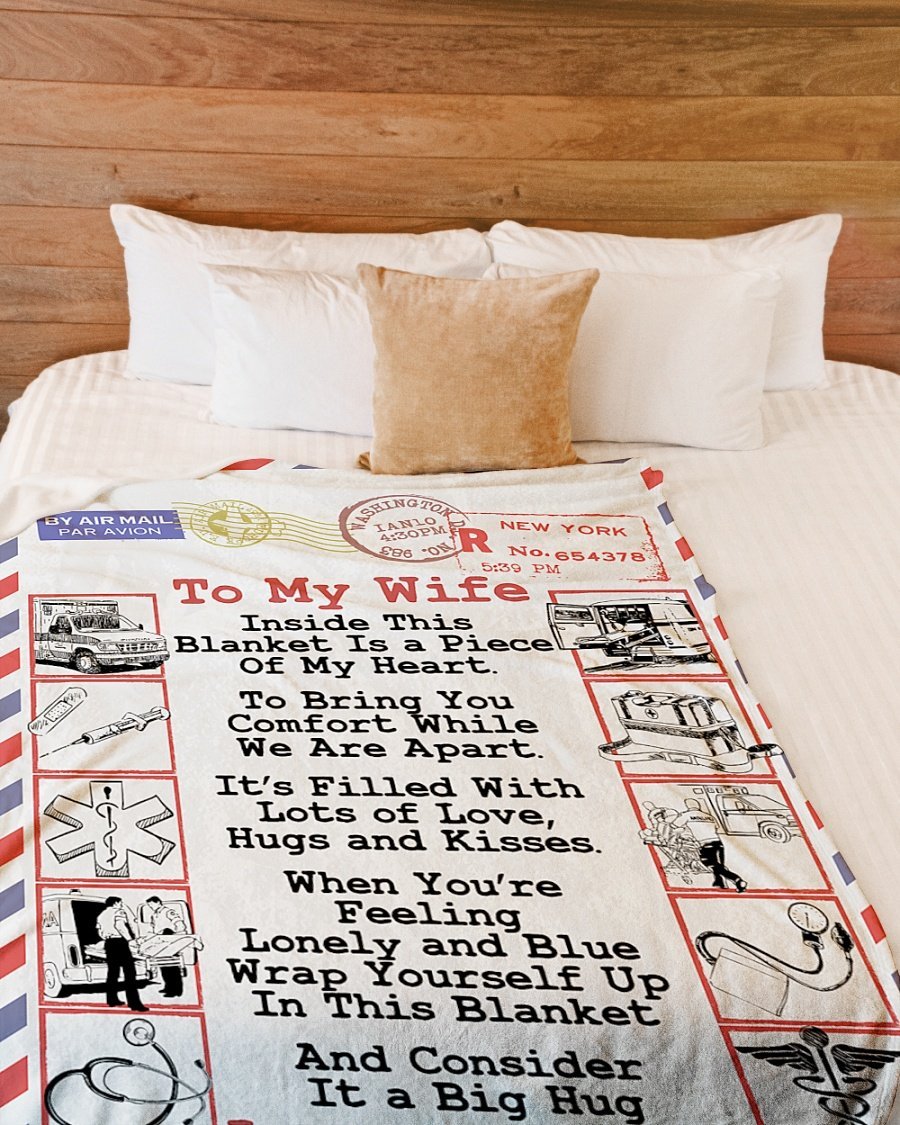 BY AIR MAIL
PAR AVION
WASHINGTON D.
IAN10
4:30PM
NO. 983
R
NEW YORK
No. 654378
5:39 PM
To My Wife
Inside This
Blanket Is a Piece
Of My Heart.
To Bring You
Comfort While
We Are Apart.
It's Filled With
Lots of Love,
Hugs and Kisses.
When You're
Feeling
Lonely and Blue
Wrap Yourself Up
In This Blanket
And Consider
It a Big Hug